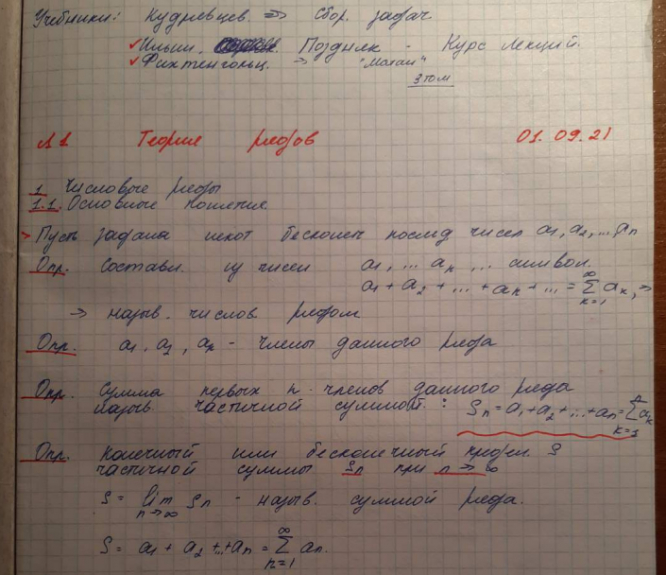 Учебники: Кудрявцев => Сбор. задач
Ильин, Поздняк - Курс лекций.
Фихтенгольц. => "Матан"
3 том
Л 1 Теория рядов 01.09.21
1 Числовые ряды
1.1. Основные понятия
> Пусть задана некот бесконеч послед чисел a1, a2, ... an
Опр. Составл. из чисел a1, ... an, ... символ.
a1 + a2 + ... + an + ... = ∑_{k=1}^{∞} ak, =>
-> назыв. числов рядом
Опр. a1, a2, ak - члены данного ряда
Опр. Сумма первых n членов данного ряда
назыв. частичной суммой: Sn = a1 + a2 + ... + an = ∑_{k=1}^{n} ak
Опр. Конечный или бесконечный предел. S
частичной суммы Sn при n -> ∞
S = lim_{n→∞} Sn - назыв. суммой ряда.
S = a1 + a2 + ... + an = ∑_{n=1}^{∞} an.